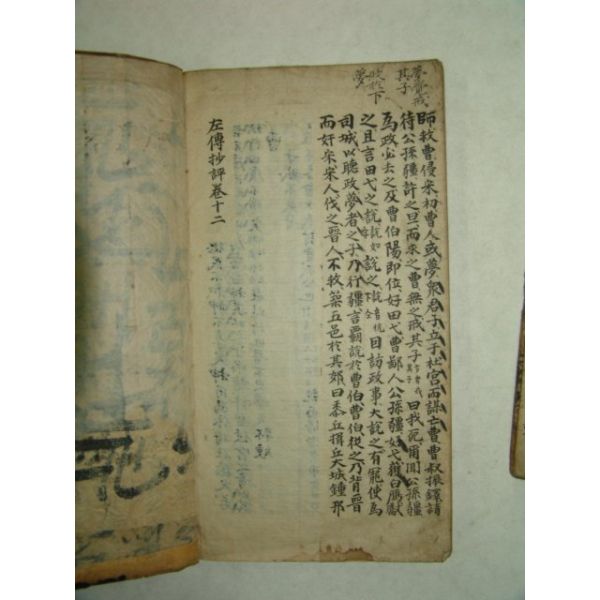 夢者戒
其子
政於下
夢
師救曹侵宋初曹人或夢衆君子立于社宮而謀亡曹曹叔振鐸請
待公孫彊許之旦而求之曹無之戒其子曰我死爾聞公孫彊
爲政必去之及曹伯陽即位好田弋曹鄙人公孫彊好弋獲白鴈獻
之且言田弋之說說之因訪政事大說之有寵使爲
司城以聽政夢者之子乃行彊言霸說於曹伯曹伯從之乃背晉
而奸宋宋人伐之晉人不救築五邑於其郊曰黍丘揖丘大城鍾邘
左傳抄評卷十二